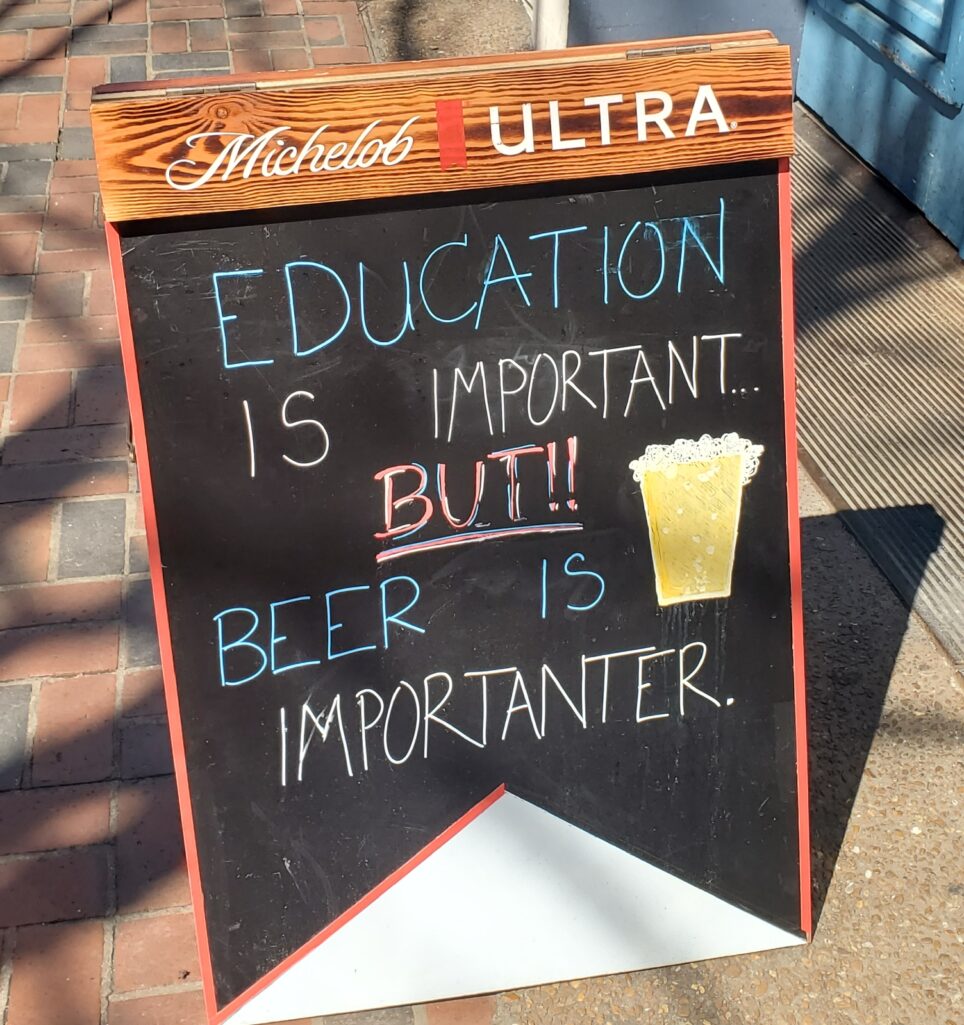 Michelob ULTRA®
EDUCATION
IS IMPORTANT...
BUT!!
BEER IS
IMPORTANTER.